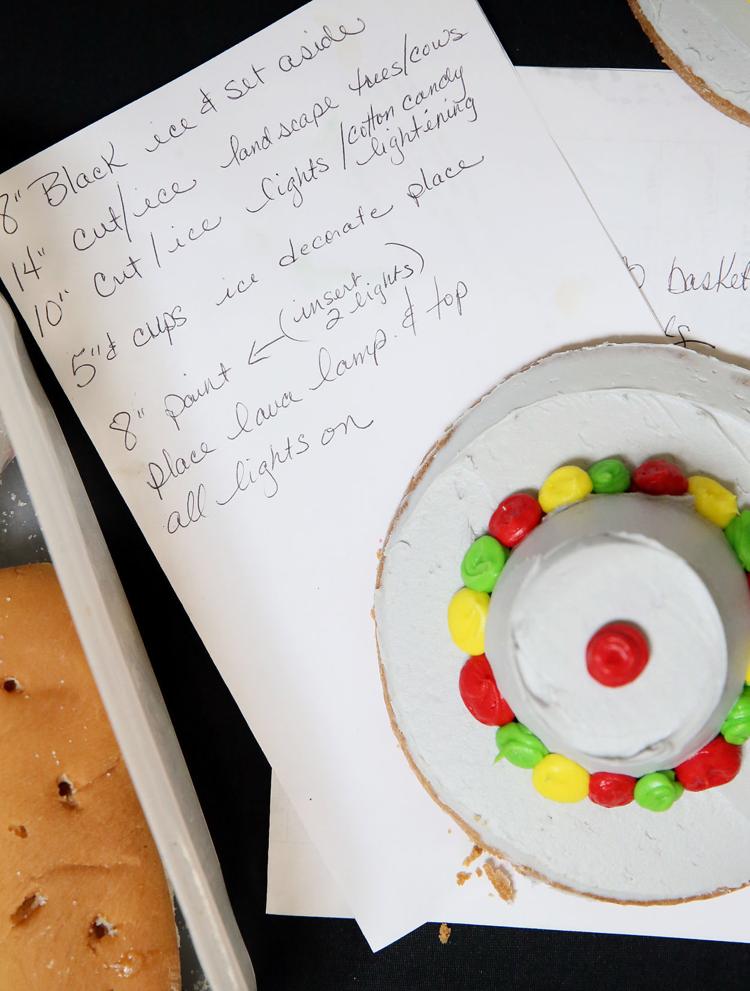 8" Black ice & set aside
14" cut/ice landscape trees/cows
10" cut/ice lights/cotton candy
lightening
5" & cups ice decorate place
8" paint ← (insert
2 lights)
place lava lamp & top
all lights on
basket